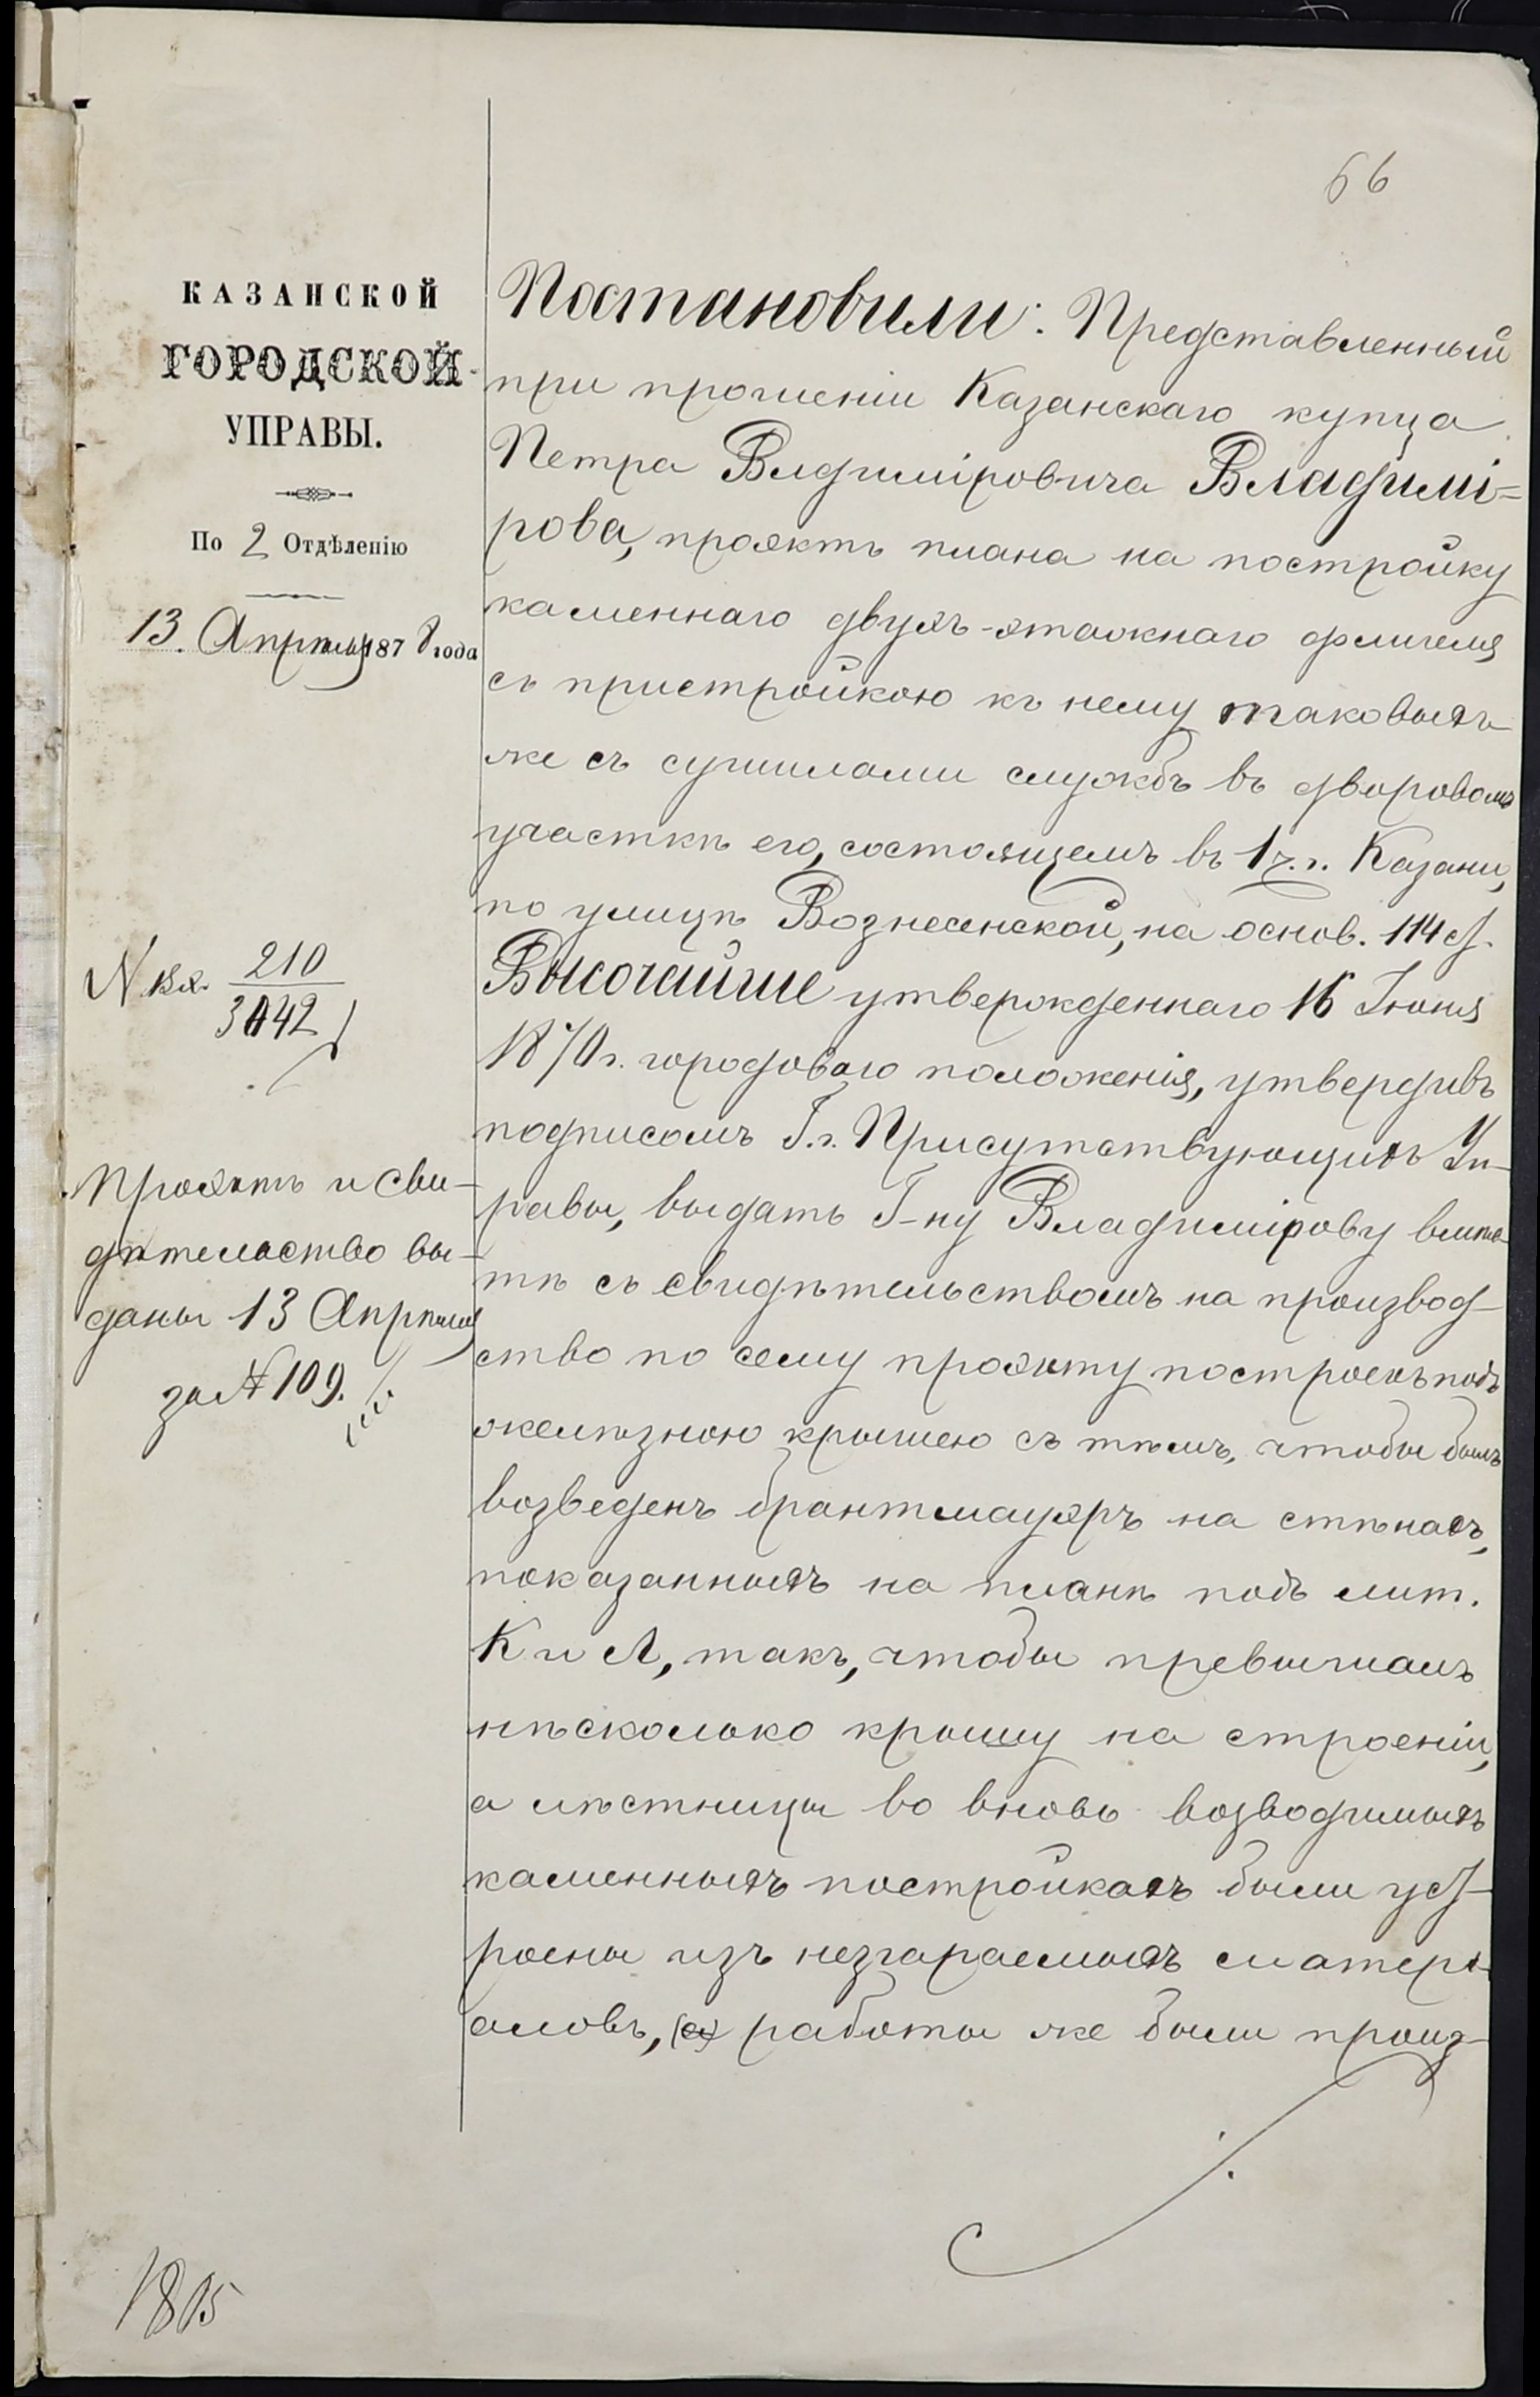 66
КАЗАНСКОЙ
ГОРОДСКОЙ
УПРАВЫ.
По 2 Отдѣленію
13. Апрѣля 1878 года
N вх. 210
3042
Проэктъ и сви-
дѣтельство вы-
даны 13 Апрѣля
за № 109.
1815
Постановили: Представленный
при прошеніи Казанскаго купца
Петра Влдиміровича Владимі=
рова, проэктъ плана на постройку
каменнаго двухъ-этажнаго флигеля
съ пристройкою къ нему таковыхъ
же съ сушилами службъ въ дворовомъ
участкѣ его, состоящемъ въ 1 ч. г. Казани,
по улицѣ Вознесенской, на основ. 114 ст.
Высочайше утвержденнаго 16 Іюня
1870 г. городоваго положенія, утвердивъ
подписомъ Г.г. Присутствующихъ Уп-
равы, выдать Г-ну Владимірову вмѣс-
тѣ съ свидѣтельствомъ на производ-
ство по сему проэкту построекъ подъ
желѣзною крышею съ тѣмъ, чтобы былъ
возведенъ брантмауэръ на стѣнахъ,
показанныхъ на планѣ подъ лит.
К и Л, такъ, чтобы превышалъ
нѣсколько крышу на строеніи,
а лѣстницы во вновь возводимыхъ
каменныхъ постройкахъ были уст-
роены изъ незгараемыхъ матері-
аловъ, (а) работы же были произ-